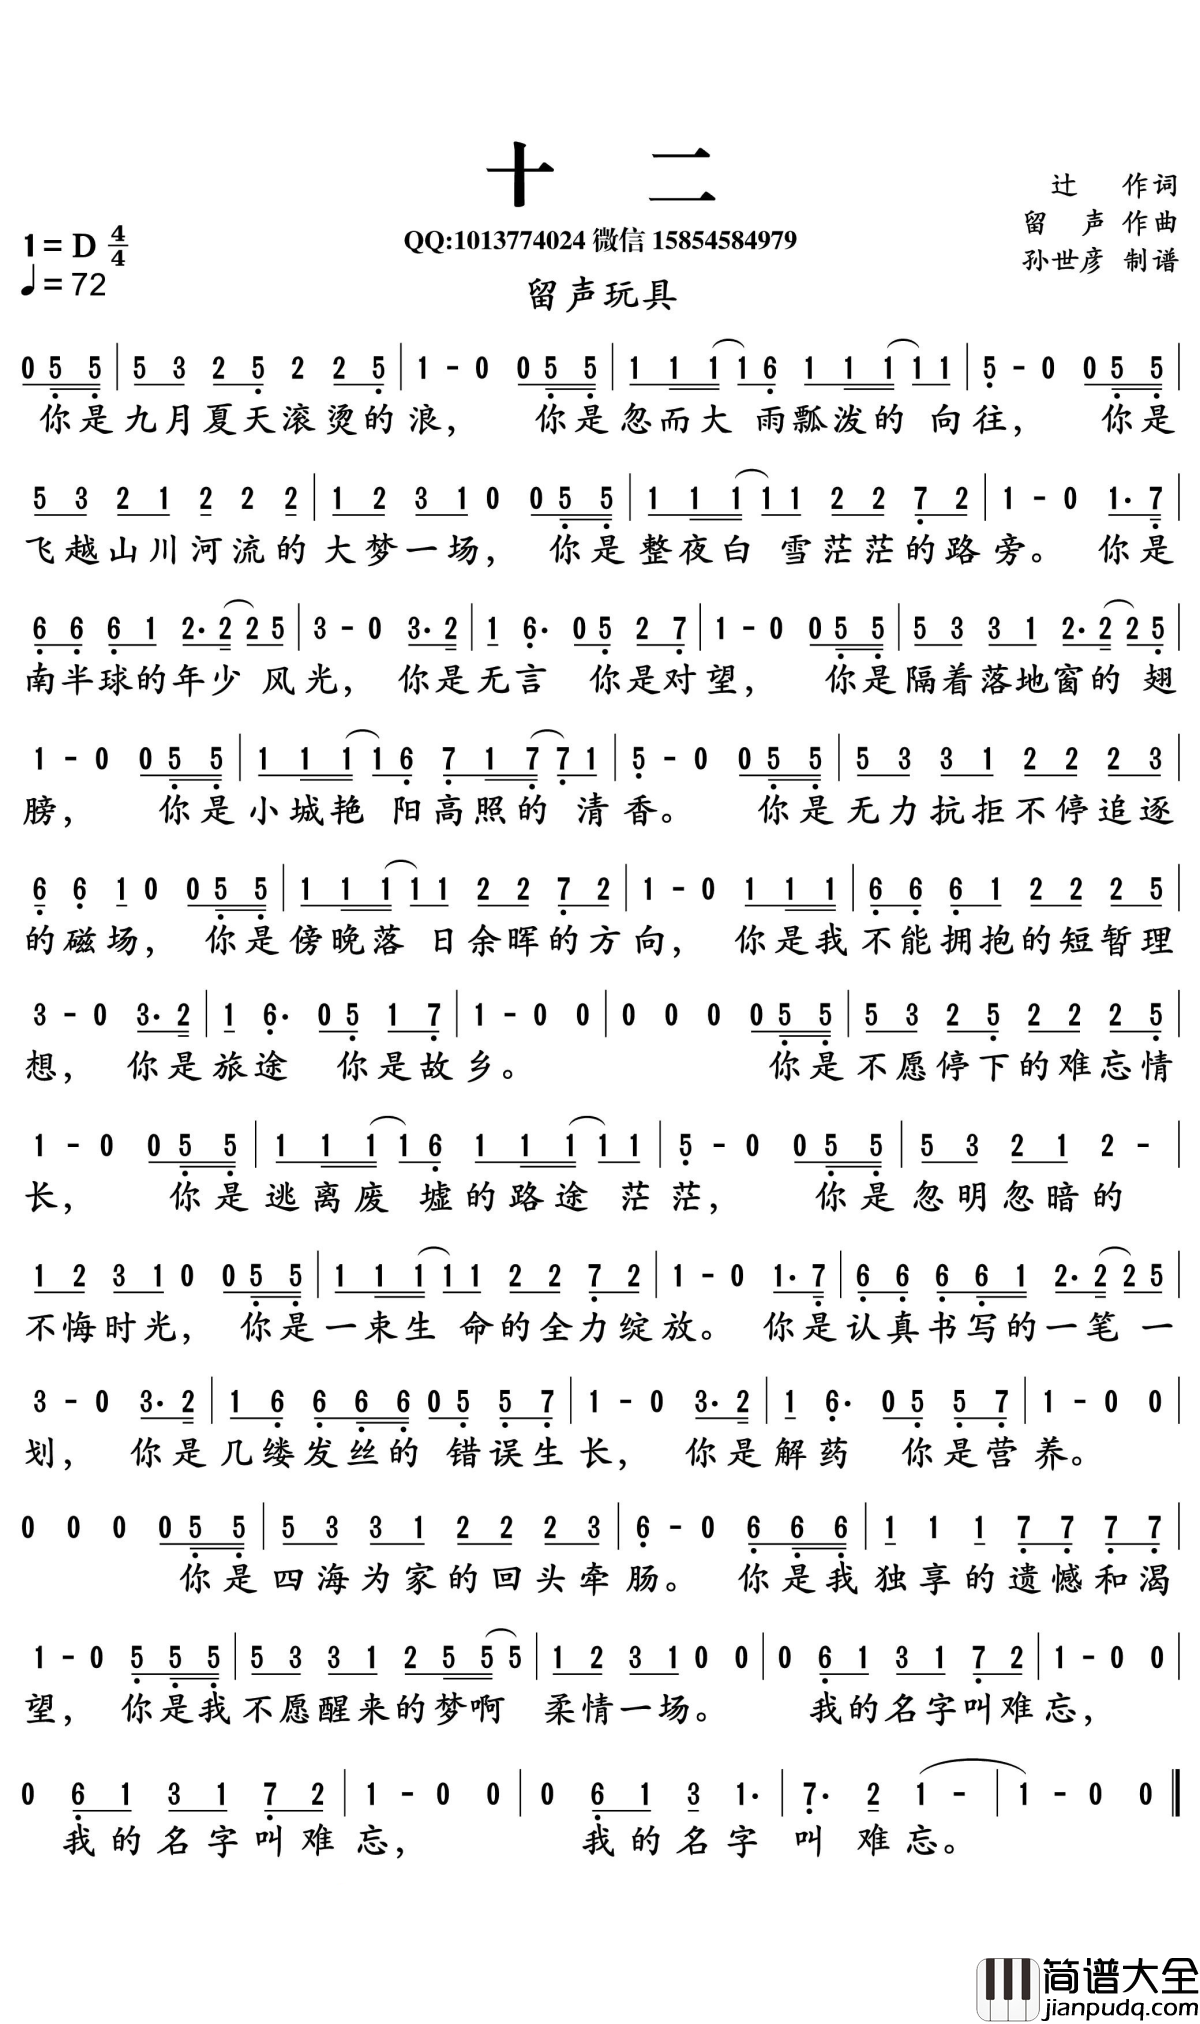 十 二
辻 作词
留 声 作曲
孙世彦 制谱
QQ:1013774024 微信 15854584979
1=D 4/4
♩=72
留声玩具
0 5 5 | 5 3 2 5 2 2 5 | 1 - 0 0 5 5 | 1 1 1 1 6 1 1 1 1 1 | 5 - 0 0 5 5 |
你是九月夏天滚烫的浪， 你是忽而大 雨瓢泼的 向往， 你是
5 3 2 1 2 2 2 | 1 2 3 1 0 0 5 5 | 1 1 1 1 1 2 2 7 2 | 1 - 0 1. 7 |
飞越山川河流的大梦一场， 你是整夜白 雪茫茫的路旁。 你是
6 6 6 1 2. 2 2 5 | 3 - 0 3. 2 | 1 6. 0 5 2 7 | 1 - 0 0 5 5 | 5 3 3 1 2. 2 2 5 |
南半球的年少 风光， 你是无言 你是对望， 你是隔着落地窗的 翅
1 - 0 0 5 5 | 1 1 1 1 6 7 1 7 7 1 | 5 - 0 0 5 5 | 5 3 3 1 2 2 2 3 |
膀， 你是小城艳 阳高照的 清香。 你是无力抗拒不停追逐
6 6 1 0 0 5 5 | 1 1 1 1 1 2 2 7 2 | 1 - 0 1 1 1 | 6 6 6 1 2 2 2 5 |
的磁场， 你是傍晚落 日余晖的方向， 你是我不能拥抱的短暂理
3 - 0 3. 2 | 1 6. 0 5 1 7 | 1 - 0 0 | 0 0 0 0 5 5 | 5 3 2 5 2 2 2 5 |
想， 你是旅途 你是故乡。 你是不愿停下的难忘情
1 - 0 0 5 5 | 1 1 1 1 6 1 1 1 1 1 | 5 - 0 0 5 5 | 5 3 2 1 2 - |
长， 你是逃离废 墟的路途 茫茫， 你是忽明忽暗的
1 2 3 1 0 0 5 5 | 1 1 1 1 1 2 2 7 2 | 1 - 0 1. 7 | 6 6 6 6 1 2. 2 2 5 |
不悔时光， 你是一束生 命的全力绽放。 你是认真书写的一笔 一
3 - 0 3. 2 | 1 6 6 6 6 0 5 5 7 | 1 - 0 3. 2 | 1 6. 0 5 5 7 | 1 - 0 0 |
划， 你是几缕发丝的 错误生长， 你是解药 你是营养。
0 0 0 0 5 5 | 5 3 3 1 2 2 2 3 | 6 - 0 6 6 6 | 1 1 1 7 7 7 7 |
你是四海为家的回头牵肠。 你是我独享的遗憾和渴
1 - 0 5 5 5 | 5 3 3 1 2 5 5 5 | 1 2 3 1 0 0 | 0 6 1 3 1 7 2 | 1 - 0 0 |
望， 你是我不愿醒来的梦啊 柔情一场。 我的名字叫难忘，
0 6 1 3 1 7 2 | 1 - 0 0 | 0 6 1 3 1. | 7. 2 1 - | 1 - 0 0 ‖
我的名字叫难忘， 我的名字 叫 难忘。
简谱大全
jianpudq.com